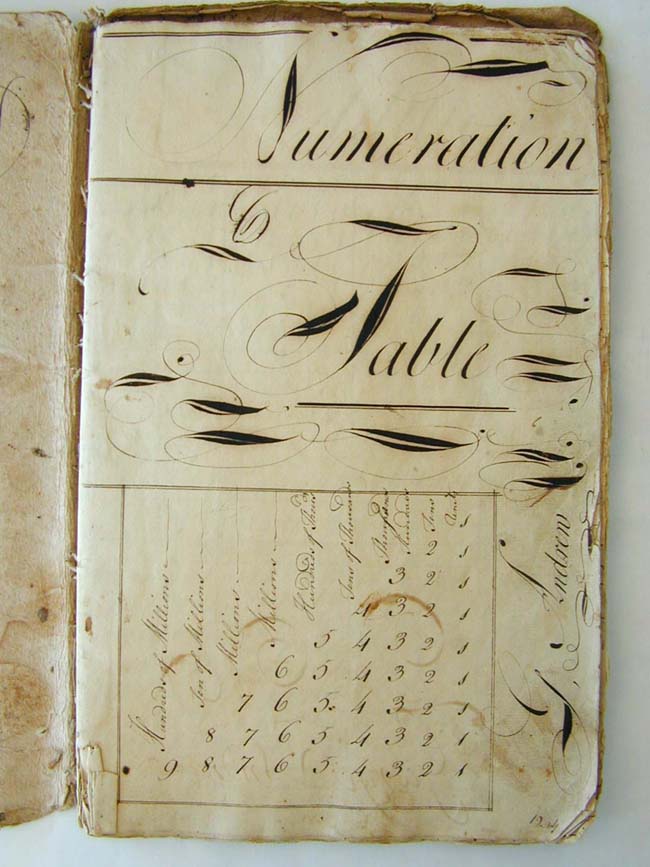 Numeration
&
Table
Hundreds of Millions
Ten of Millions
Millions
Millions
Hundreds of Thous
Tens of Thousands
Thousands
Hundreds
Tens
Units
1
2 1
3 2 1
4 3 2 1
5 4 3 2 1
6 5 4 3 2 1
7 6 5 4 3 2 1
8 7 6 5 4 3 2 1
9 8 7 6 5 4 3 2 1
Andrew